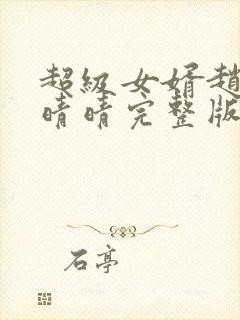 超級女婿趙
晴晴完整版
石亭